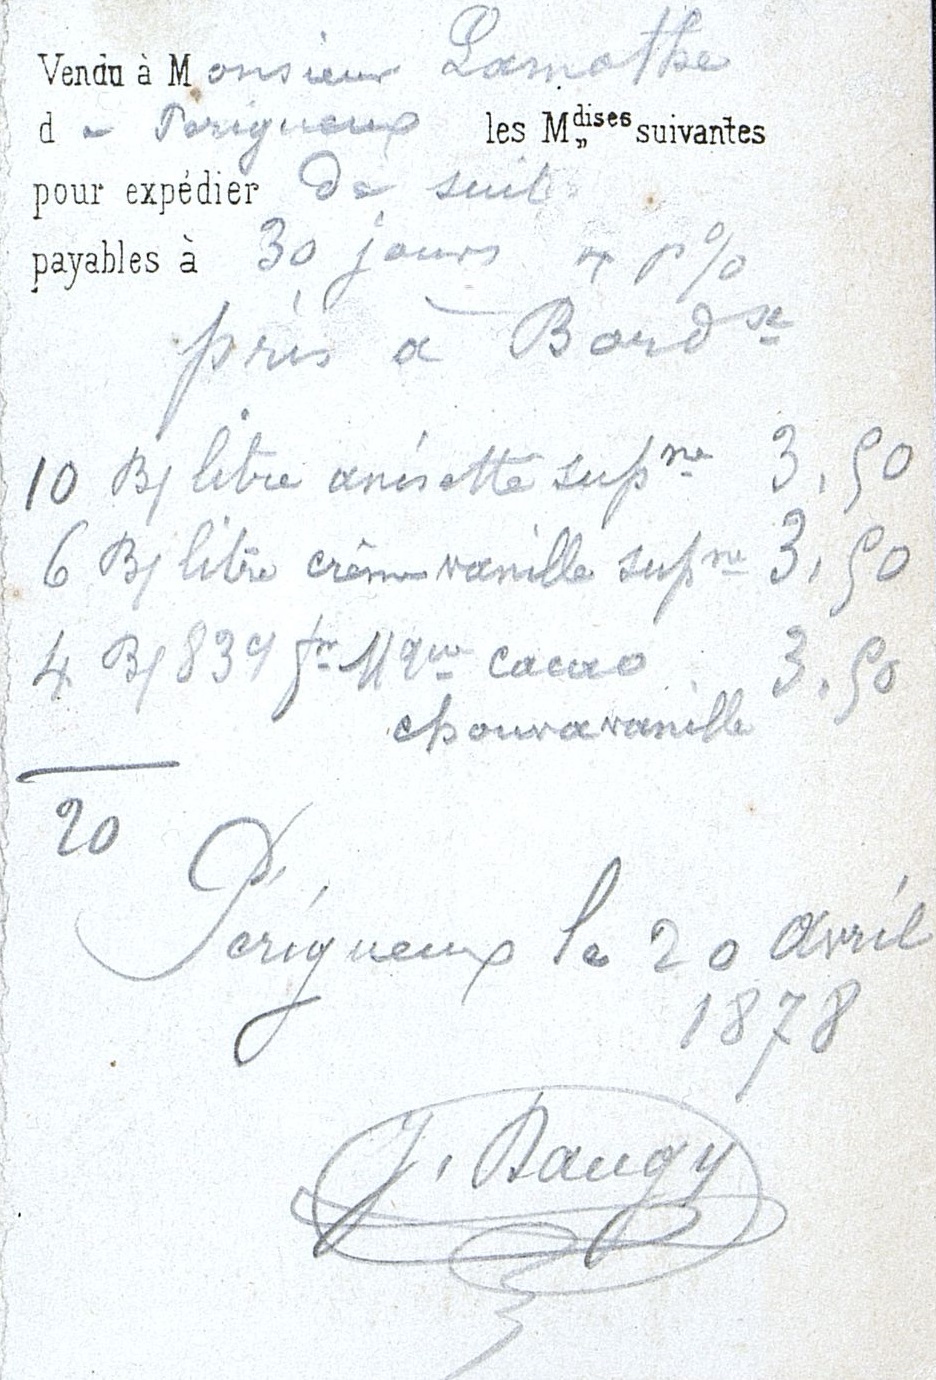 Vendu à Monsieur Lamothe
de Perigueux les Mdises suivantes
pour expédier de suite
payables à 30 jours 4 p%
pris à Bordx
10 B/ litre anisette supne 3,50
6 B/ litre crème vanille supne 3,50
4 B/ cacao 3,50
chouva vanille
20
Périgueux le 20 Avril
1878
J. Baugy